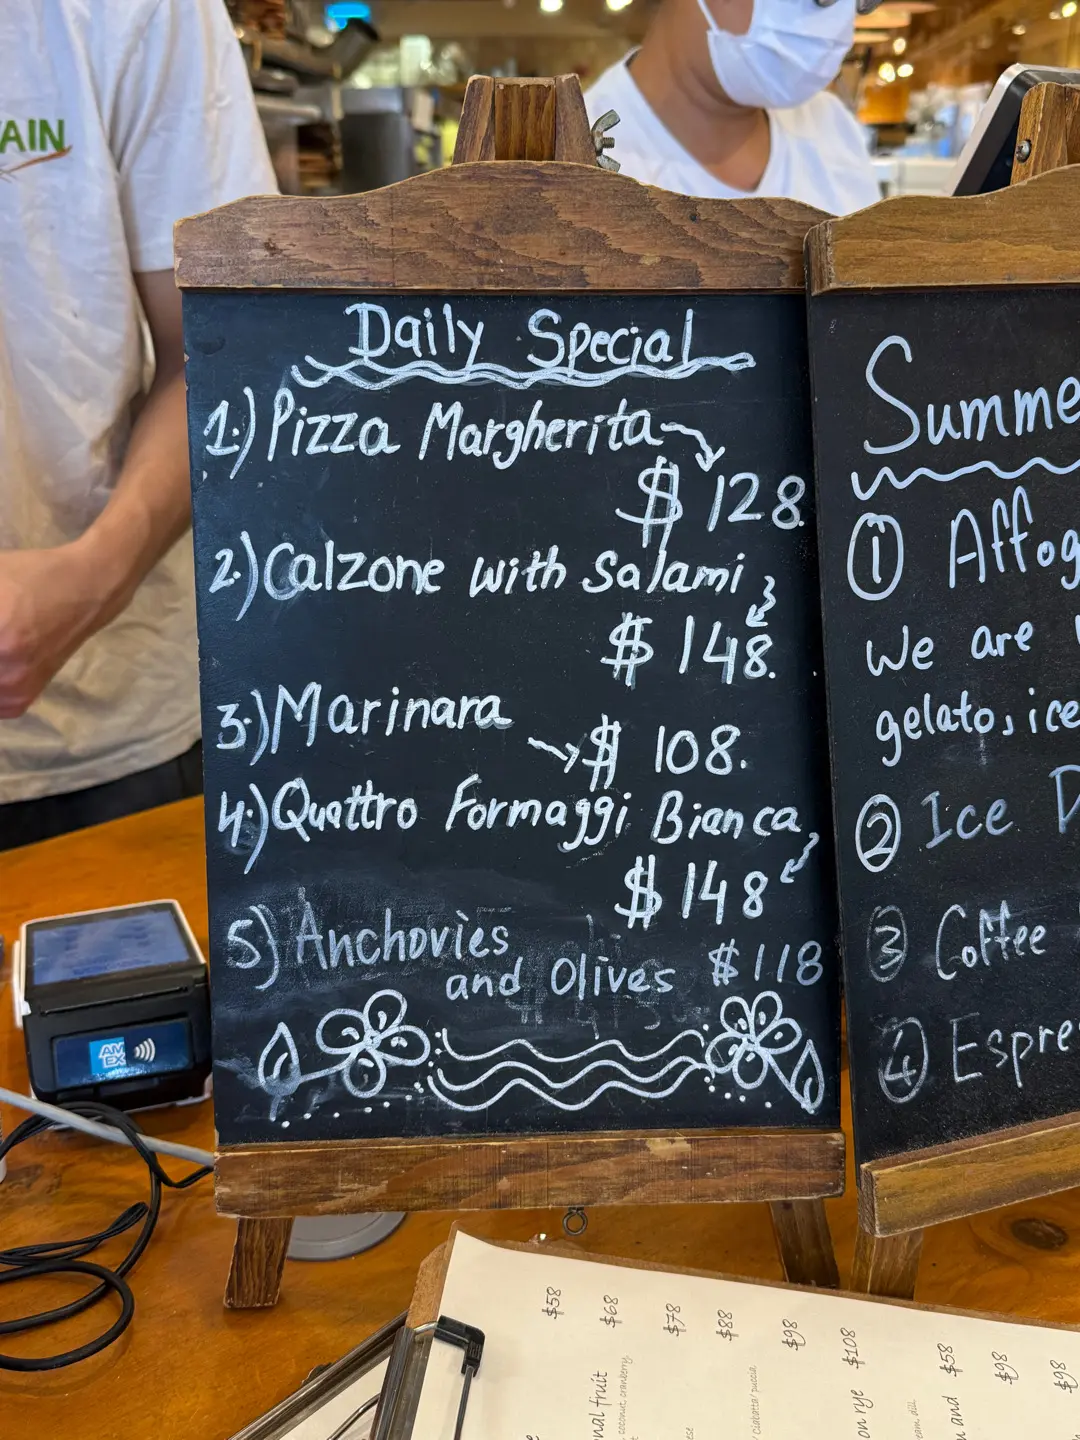 Daily Special
1.) Pizza Margherita
$ 128.
2.) Calzone with Salami
$ 148.
3.) Marinara
$ 108.
4.) Quattro Formaggi Bianca
$ 148
5) Anchovies
and Olives $118
Summe
1 Affog
We are
gelato, ice
2 Ice D
3 Coffee
4 Espre
AM
EX
$58
$68
$78
$88
$98
$108
$58
$98
$98
nal fruit
coconut, cranberry,
ciabatta/ puccia
on rye
eam, dill
and
AIN